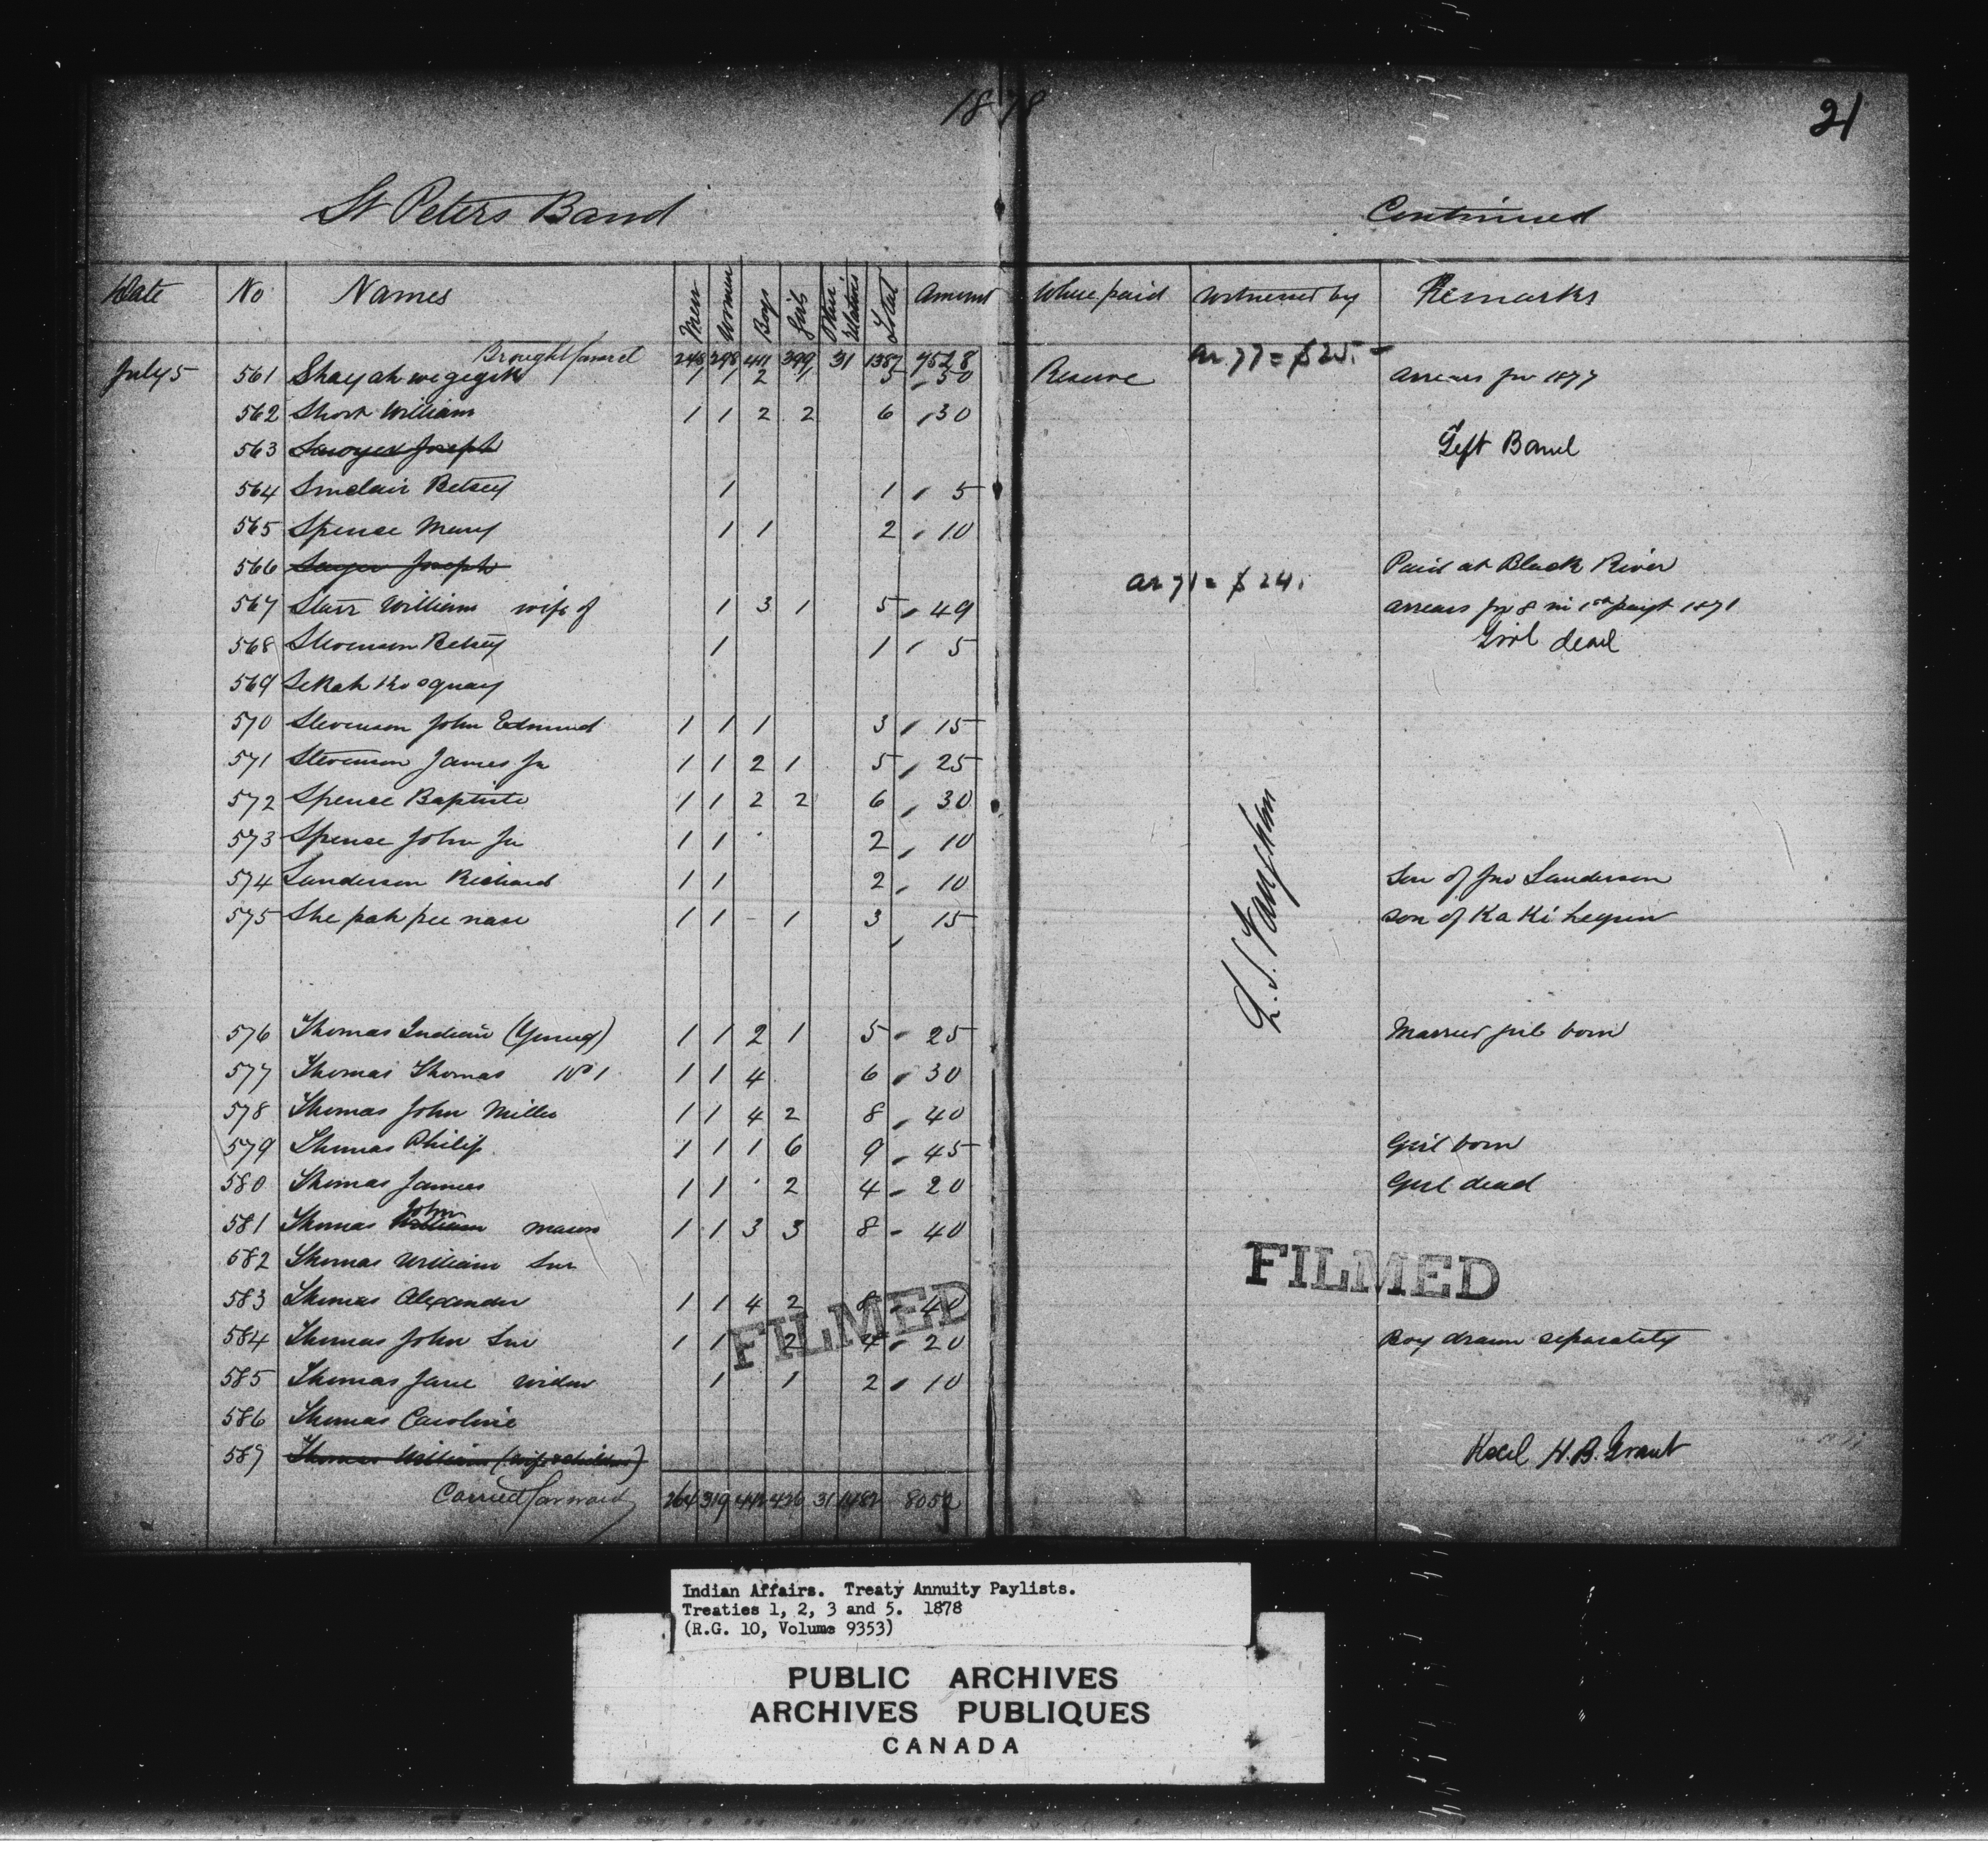 1878
21
St Peters Band Continued
Date No Names Men Women Boys Girls Other relatives Total Amount Where paid Witnessed by Remarks
Brought forward 248 298 411 399 31 1387 7528 ar 77 = $25.-
July 5 561 1 1 2 1 5 50 Reserve Arrears for 1877
562 Short William 1 1 2 2 6 30
563 Sawyer Joseph Left Band
564 Sinclair Betsey 1 1 5
565 Spence Mary 1 1 2 10
566 Joseph Paid at Black River
ar 71 = $24.
567 Starr William wife of 1 3 1 5 49 arrears for 8 in 1st paymt 1871
568 Stevenson Betsey 1 1 5 Girl dead
569
570 Stevenson John Edmund 1 1 1 3 15
571 Stevenson James Jr 1 1 2 1 5 25
572 Spence Baptiste 1 1 2 2 6 30
573 Spence John Jr 1 1 2 10
574 Sanderson Richard 1 1 2 10 Son of Jno Sanderson
575 She pah pee nase 1 1 - 1 3 15 son of Ka Ki
L. S. Vaughan
576 Thomas Indian (Young) 1 1 2 1 5 25 Married girl born
577 Thomas Thomas No 1 1 1 4 6 30
578 Thomas John Miller 1 1 4 2 8 40
579 Thomas Philip 1 1 1 6 9 45 Girl born
580 Thomas James 1 1 2 4 20 Girl dead
581 Thomas William John mason 1 1 3 3 8 40
582 Thomas William Snr
583 Thomas Alexander 1 1 4 2 8 40
584 Thomas John Snr 1 1 2 4 20 Boy drawn separately
585 Thomas Jane widow 1 1 2 10
586 Thomas Caroline
587 Thomas William (wife & children) Recd H. B. Grant
Carried forward 264 319 442 426 31 1482 8052
FILMED
FILMED
Indian Affairs. Treaty Annuity Paylists.
Treaties 1, 2, 3 and 5. 1878
(R.G. 10, Volume 9353)
PUBLIC ARCHIVES
ARCHIVES PUBLIQUES
CANADA